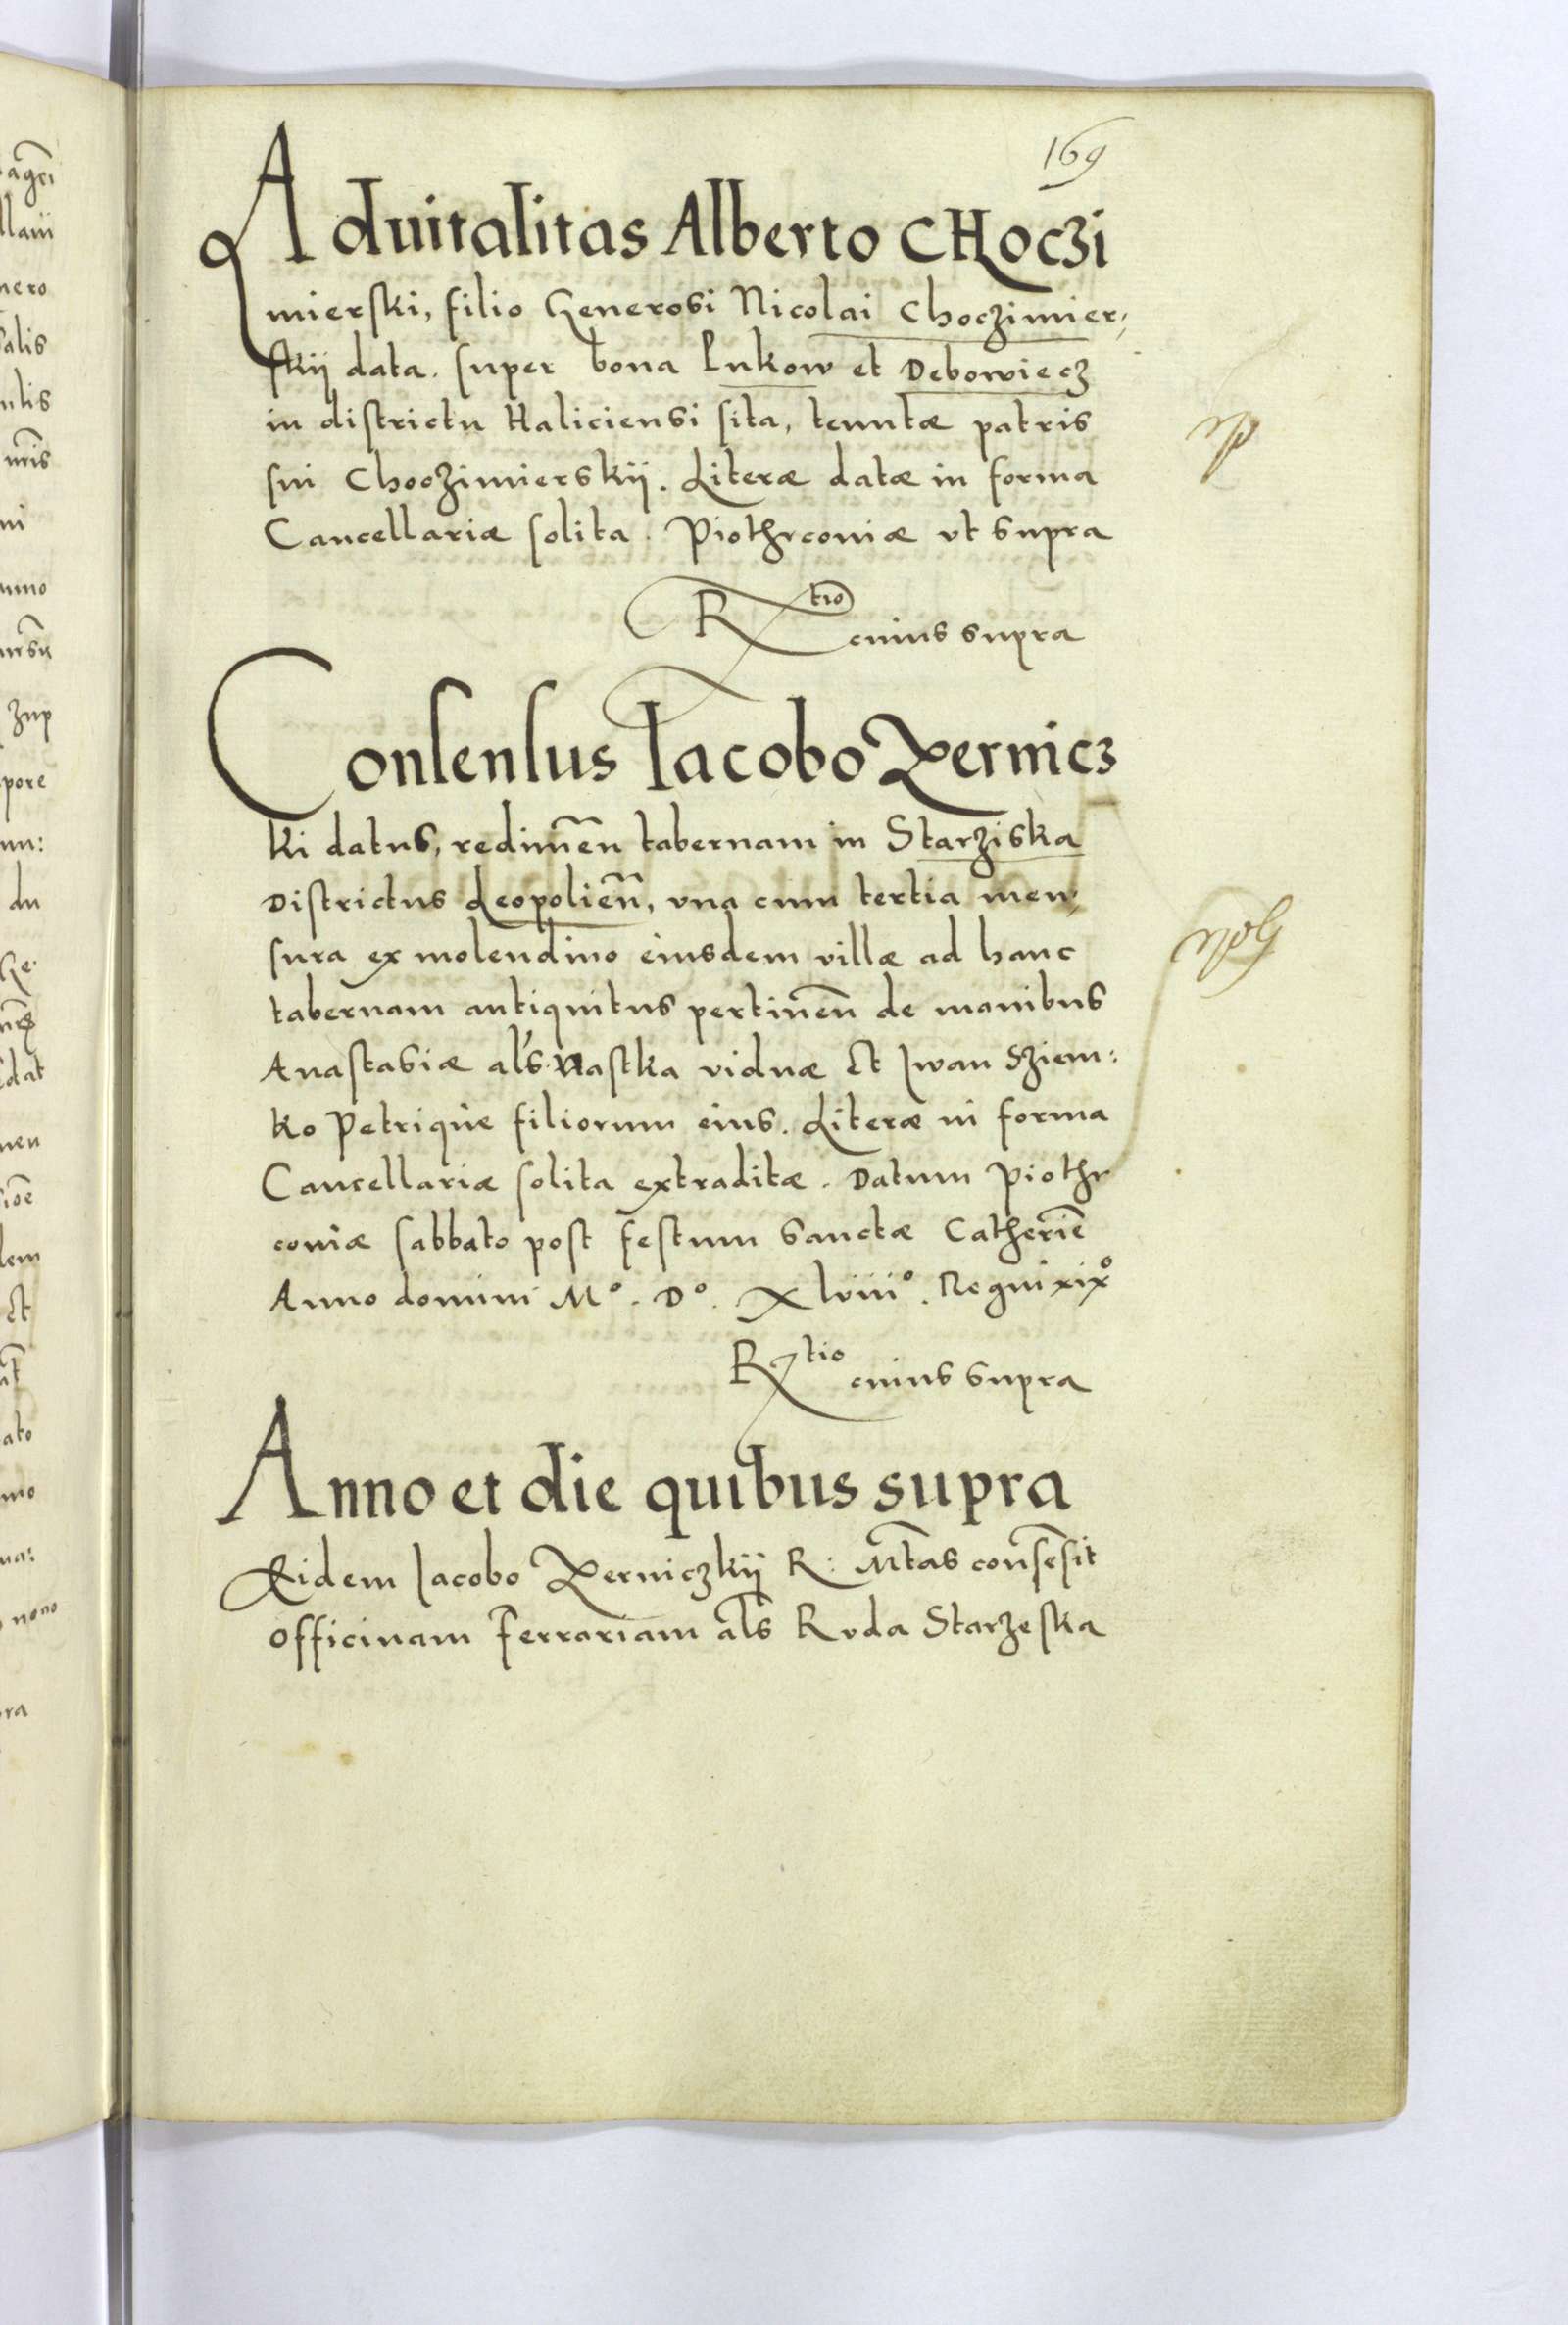 169
Aduitalitas Alberto CHoczi
mierski, filio Generosi Nicolai Choczimier⸗
skij data. super bona Lukow et Debowiecz
in districtu Haliciensi sita, tenutæ patris
sui Choczimierskij. Literæ datæ in forma
Cancellariæ solita. Piothrconiæ vt supra
R tio cuius supra
Consensus Iacobo Zernicz
ki datus, redimēn tabernam in Starziska
Districtus Leopoliēn, vna cum tertia men⸗
sura ex molendino eiusdem villæ ad hanc
tabernam antiquitus pertinēn de manibus
Anastasiæ als Nastka viduæ Et Iwan Sziem:
ko Petrique filiorum eius. Literæ in forma
Cancellariæ solita extraditæ. Datum Piothr
coniæ sabbato post festum Sanctæ Catheriē
Anno domini Mº. Dº. Xlviiiº. Regni xixº
R tio cuius supra
Anno et die quibus supra
Eidem Iacobo Zerniczkij R: Mtas consēsit
officinam Ferrariam als Ruda Starzeska